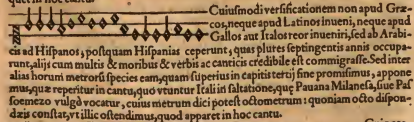 Cuiusmodi versificationem non apud Græ-
cos, neque apud Latinos inueni, neque apud
Gallos aut Italos reor inueniri, sed ab Arabi-
cis ad Hispanos, postquam Hispanias ceperunt, quas plures septingentis annis occupa-
runt, alijs cum multis & moribus & verbis ac canticis credibile est commigrasse. Sed inter
alias horum metrorũ species eam, quam superius in capitis tertij fine promisimus, appone
mus, quæ reperitur in cantu, quo vtuntur Itali in saltatione, quę Pauana Milanesa, siue Pas
soemezo vulgò vocatur, cuius metrum dici potest octometrum: quoniam octo dispon-
dæis constat, vt illic ostendimus, quod apparet in hoc cantu.